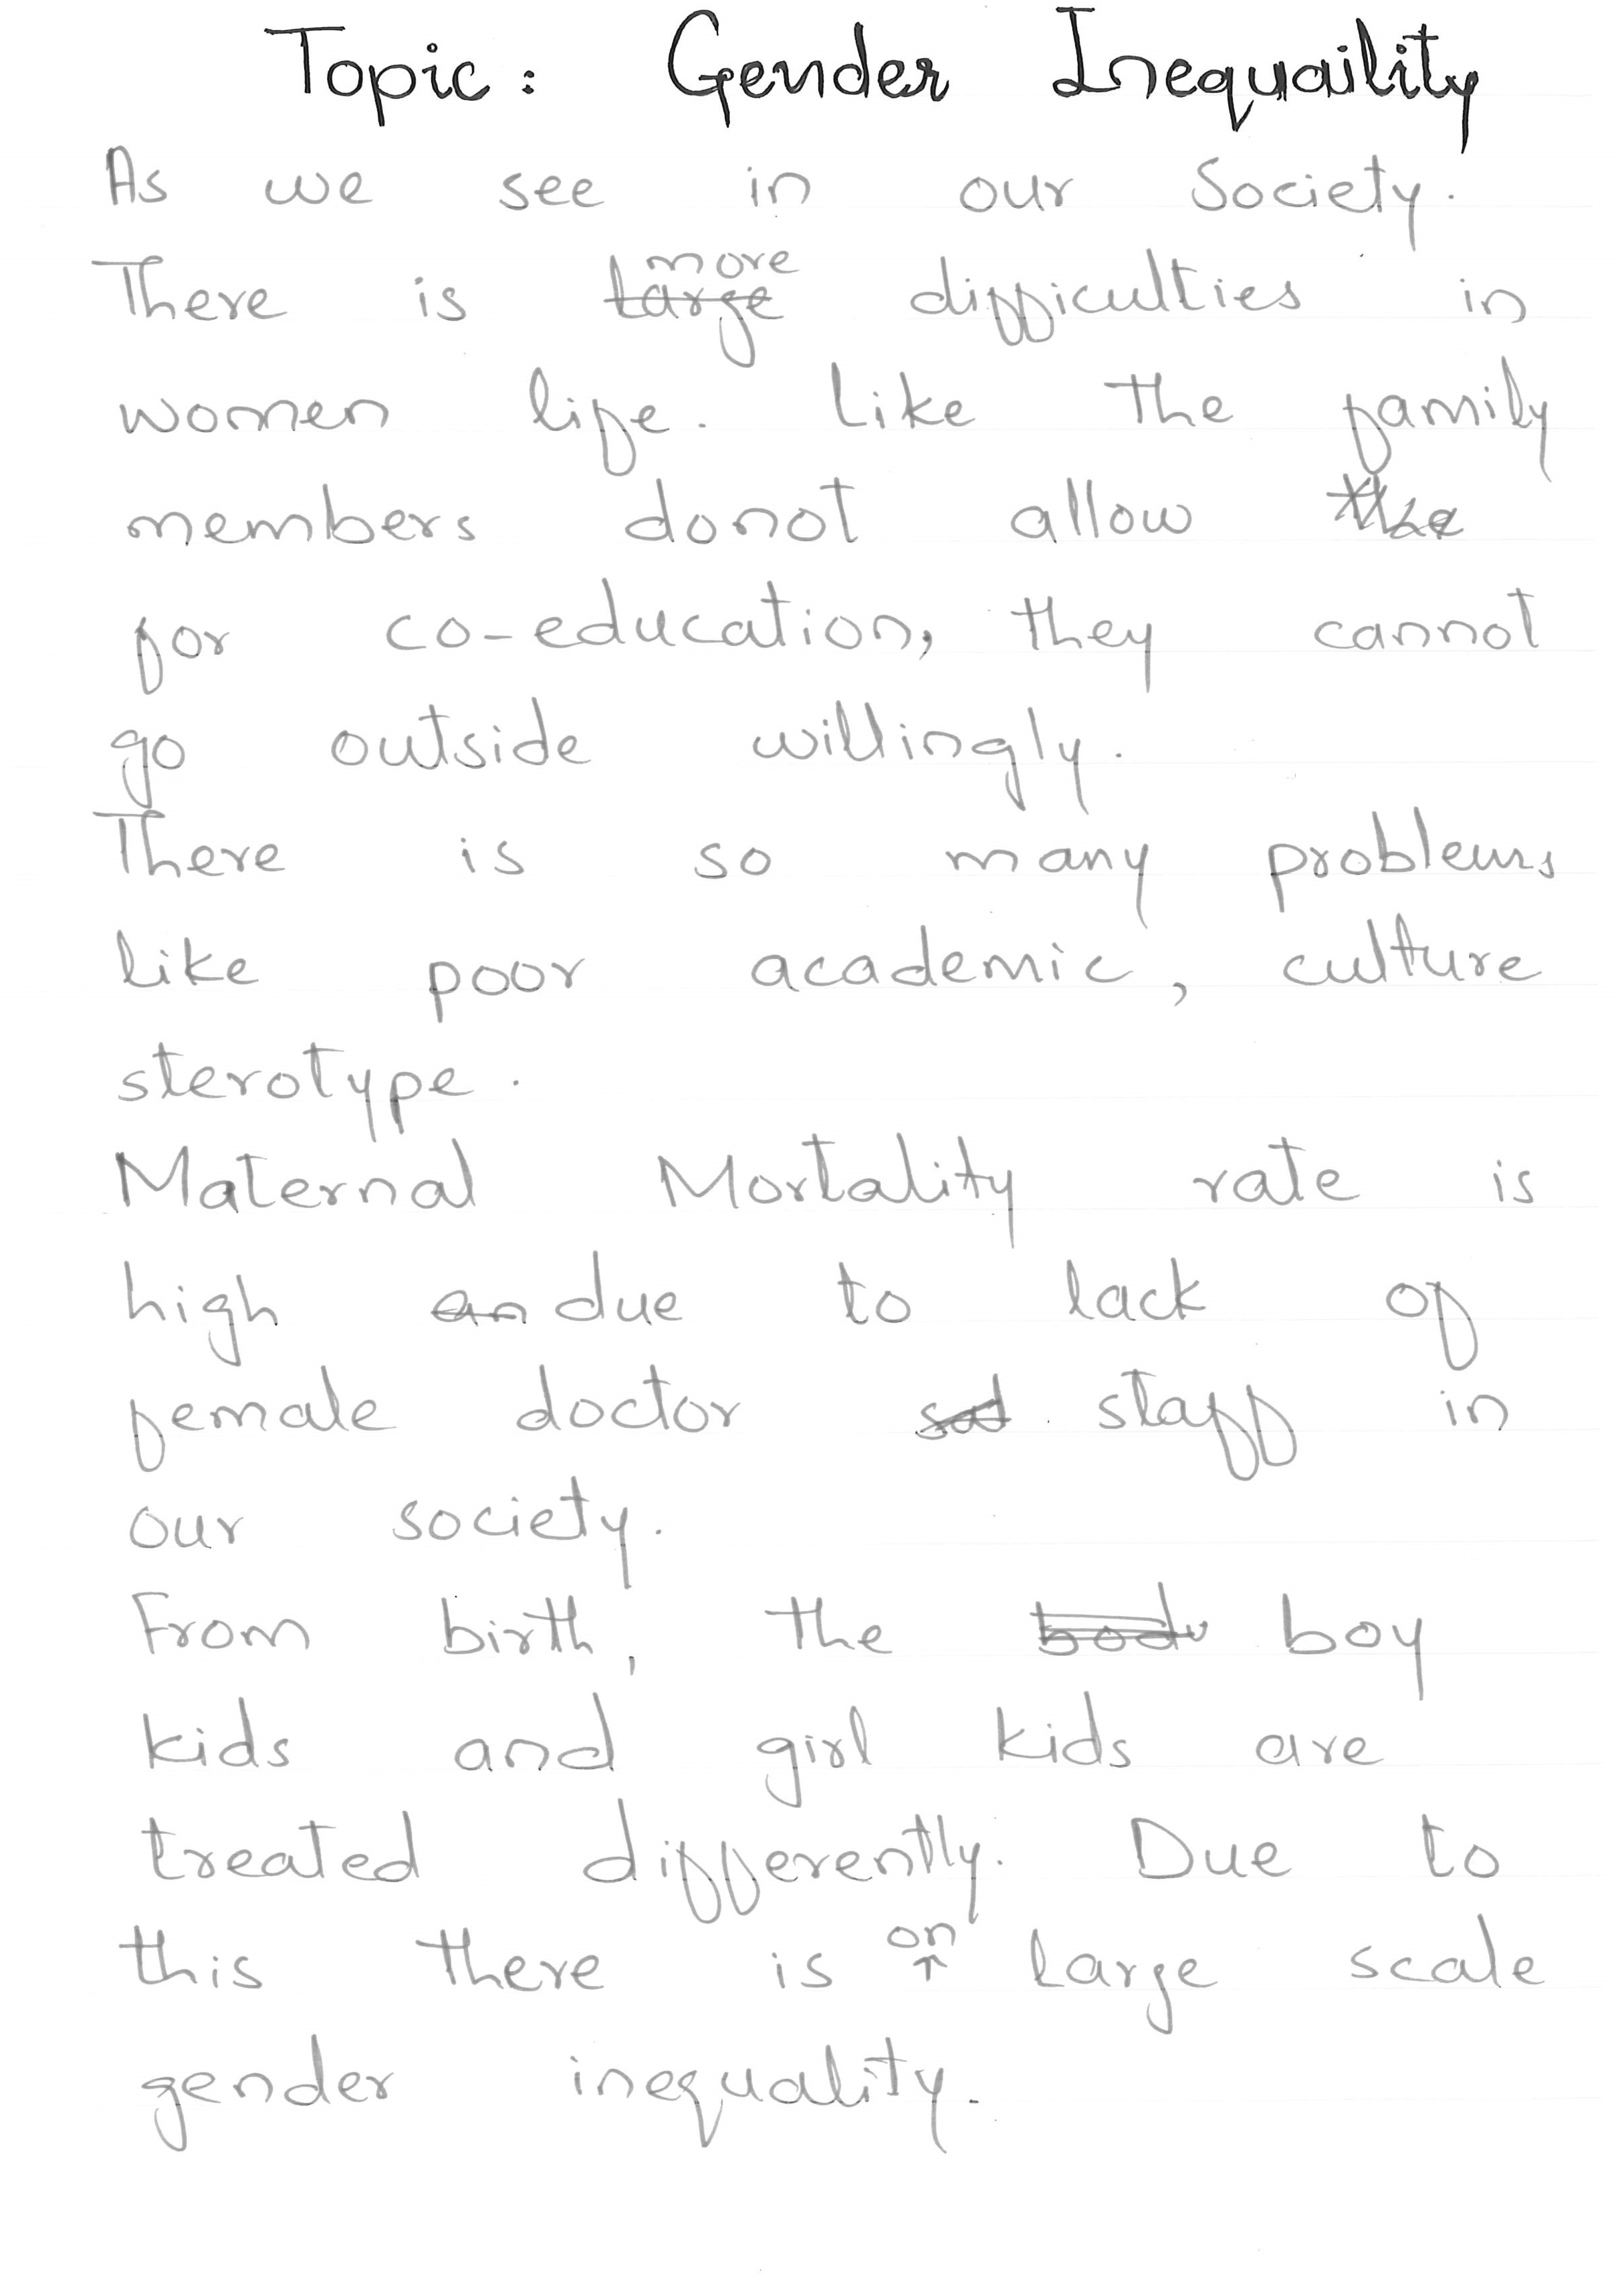 Topic: Gender Inequaility
As we see in our Society.
There is more difficulties in
women life. Like the family
members donot allow
for co-education, they cannot
go outside willingly.
There is so many problems
like poor academic, culture
sterotype.
Maternal Mortality rate is
high due to lack of
female doctor staff in
our society.
From birth, the boy
kids and girl kids are
treated differently. Due to
this there is on large scale
gender inequality.